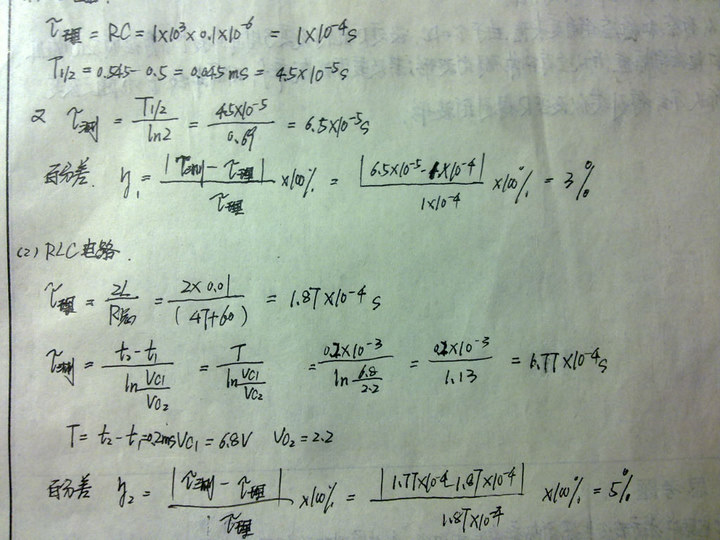 τ理 = RC = 1×10³×0.1×10⁻⁶ = 1×10⁻⁴s
T1/2 = 0.545 - 0.5 = 0.045ms = 4.5×10⁻⁵s
又 τ测 = T1/2 / ln2 = 4.5×10⁻⁵ / 0.69 = 6.5×10⁻⁵s
百分差. η₁ = |τ测 - τ理| / τ理 ×100% = |6.5×10⁻⁵ - 1×10⁻⁴| / 1×10⁻⁴ ×100% = 3%
(2) RLC电路.
τ理 = 2L / R总 = 2×0.01 / (47+60) = 1.87×10⁻⁴s
τ测 = t₂-t₁ / ln VC1/VC2 = T / ln VC1/VC2 = 0.2×10⁻³ / ln 6.8/2.2 = 0.2×10⁻³ / 1.13 = 1.77×10⁻⁴s
T = t₂ - t₁ = 0.2ms VC1 = 6.8V VC2 = 2.2
百分差 η₂ = |τ测 - τ理| / τ理 ×100% = |1.77×10⁻⁴ - 1.87×10⁻⁴| / 1.87×10⁻⁴ ×100% = 5%